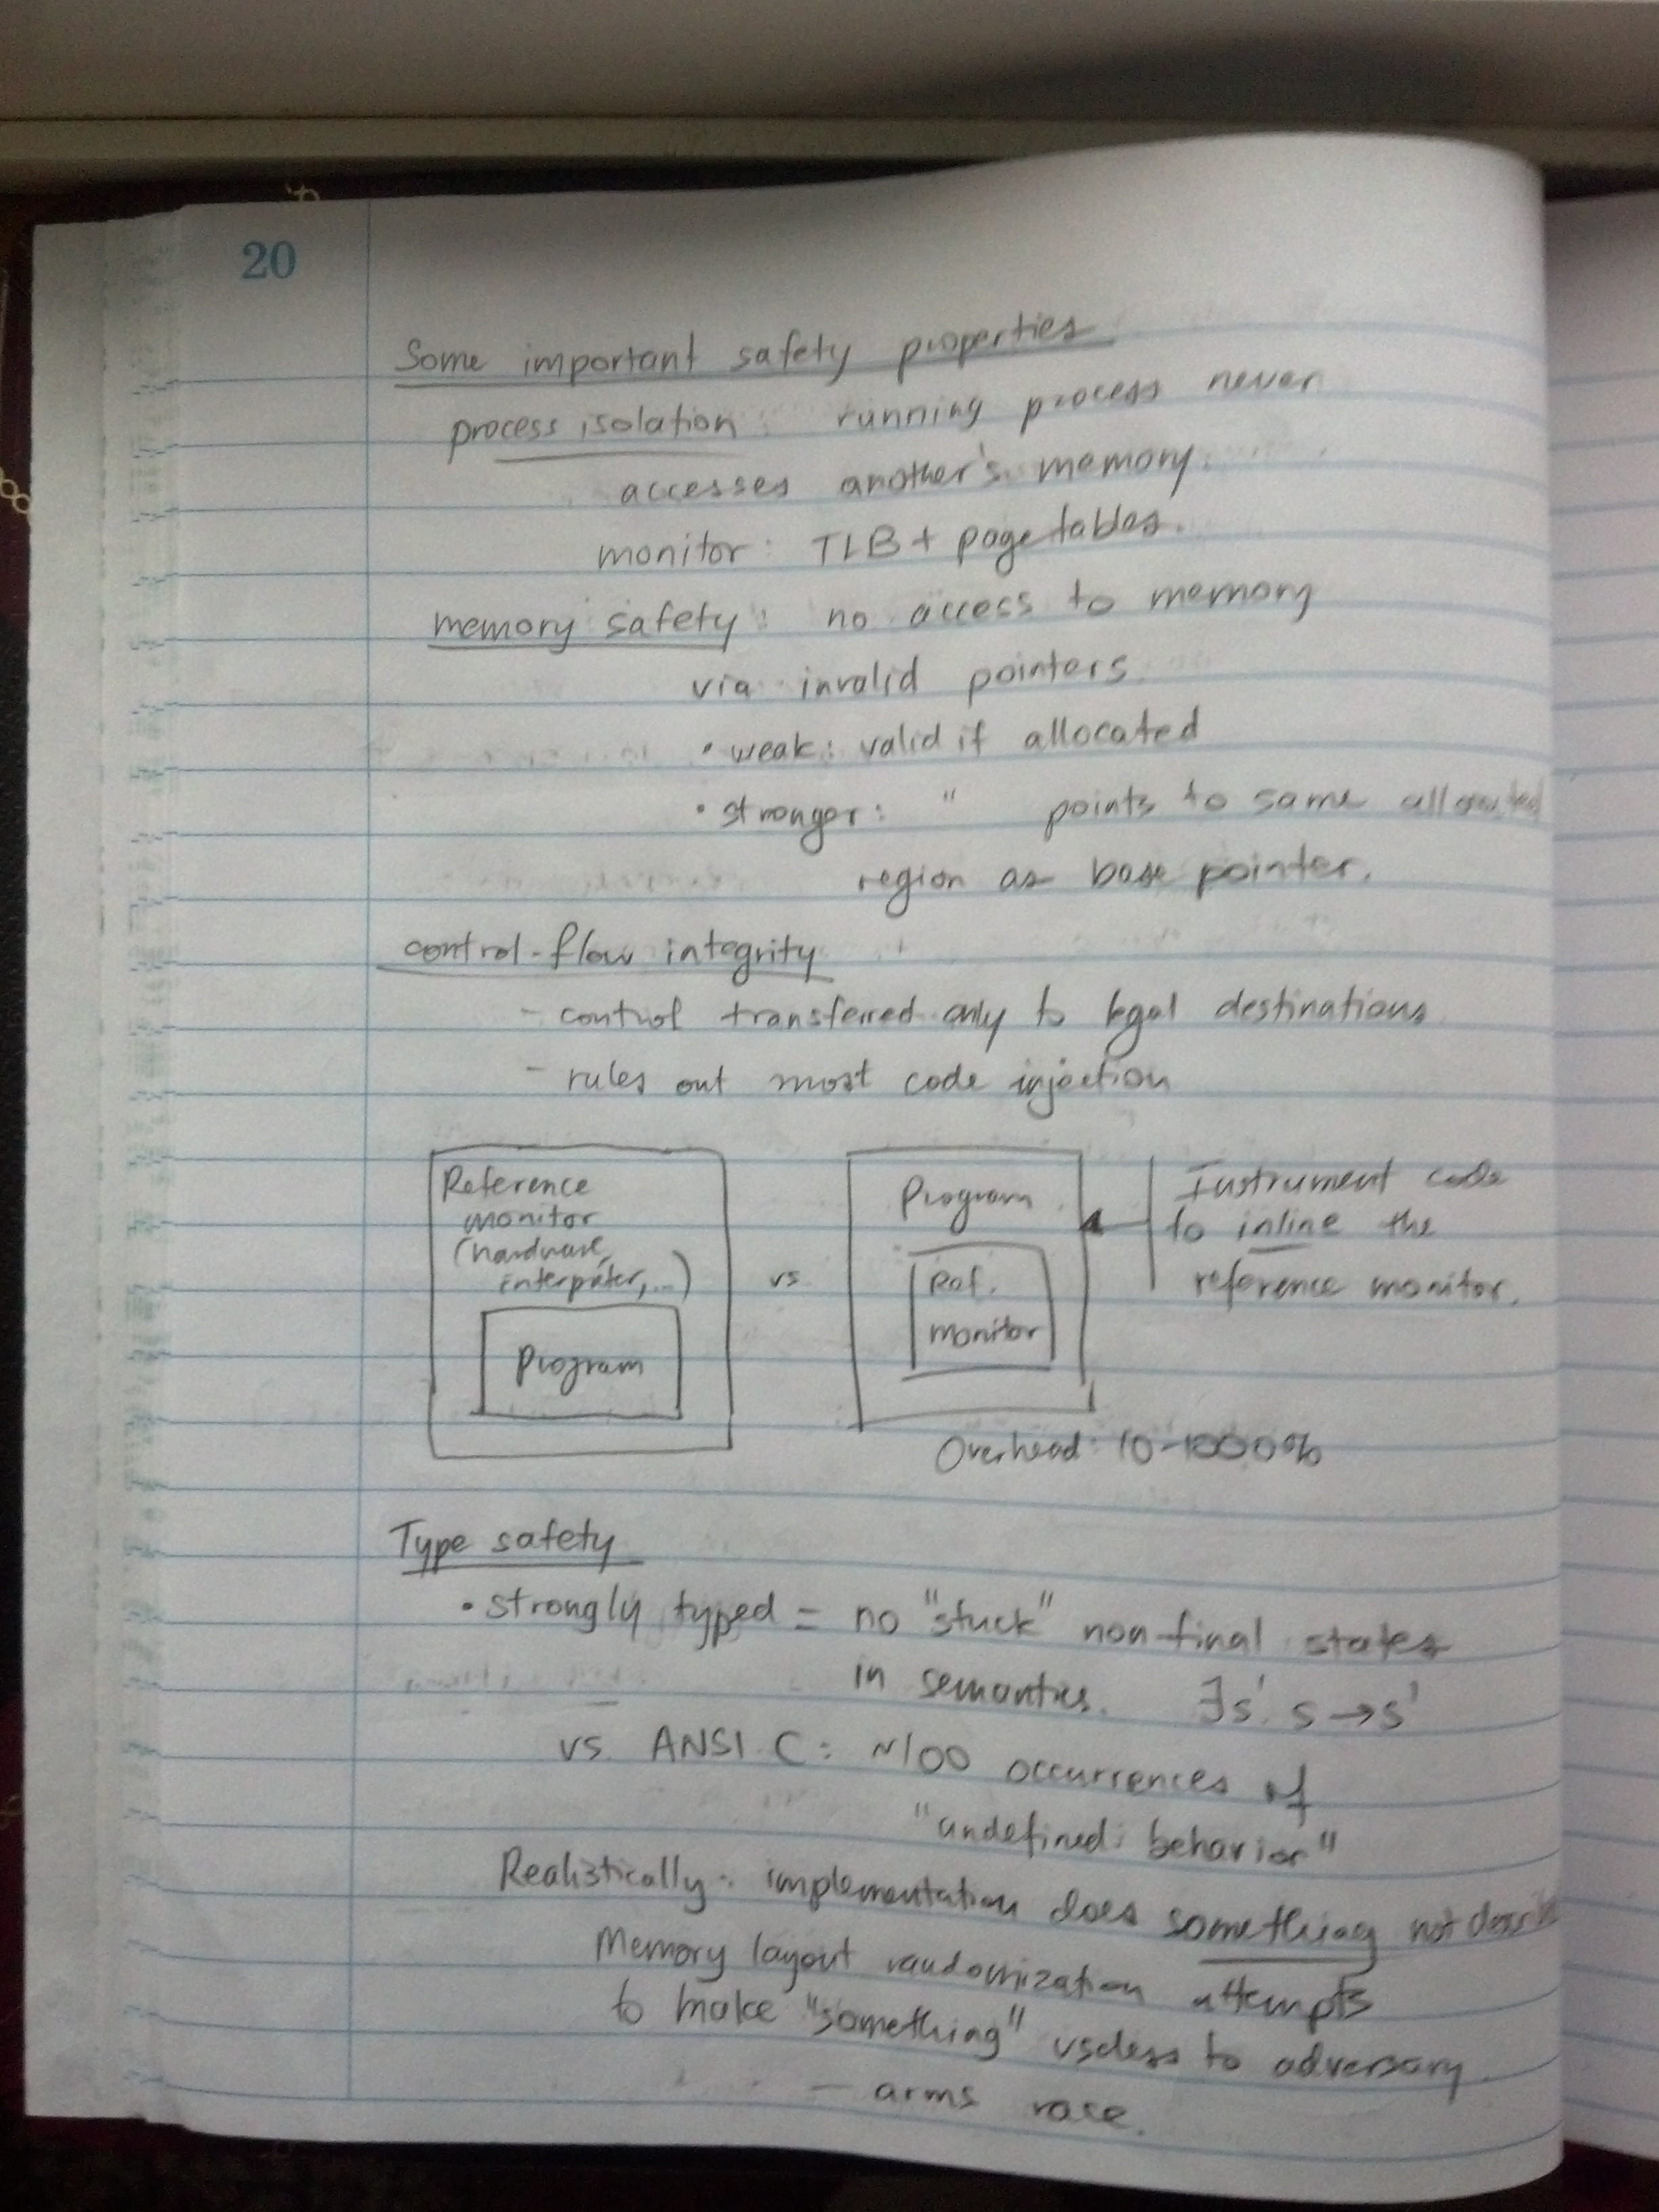 20
Some important safety properties
process isolation: running process never
accesses another's memory.
monitor: TLB + page tables.
memory safety: no access to memory
via invalid pointers.
• weak: valid if allocated
• stronger: " points to same allocated
region as base pointer.
control-flow integrity
- control transferred only to legal destinations
- rules out most code injection
Reference
monitor
(hardware,
interpreter,...)
Program
vs
Program
Ref.
monitor
Instrument code
to inline the
reference monitor.
Overhead: 10-1000%
Type safety
• strongly typed = no "stuck" non-final states
in semantics. ∃s'. s → s'
vs. ANSI C: ~100 occurrences of
"undefined behavior"
Realistically: implementation does something not
Memory layout randomization attempts
to make "something" useless to adversary.
- arms race.